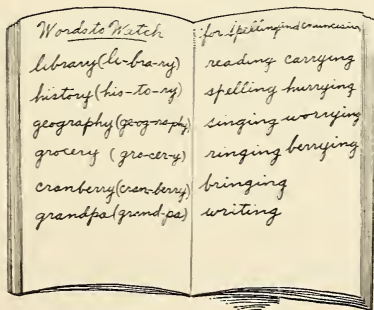 Words to Watch
library (li-bra-ry)
history (his-to-ry)
geography (geog-raphy)
grocery (gro-cer-y)
cranberry (cran-berry)
grandpa (grand-pa)
for spelling and
reading carrying
spelling hurrying
singing worrying
ringing berrying
bringing
writing